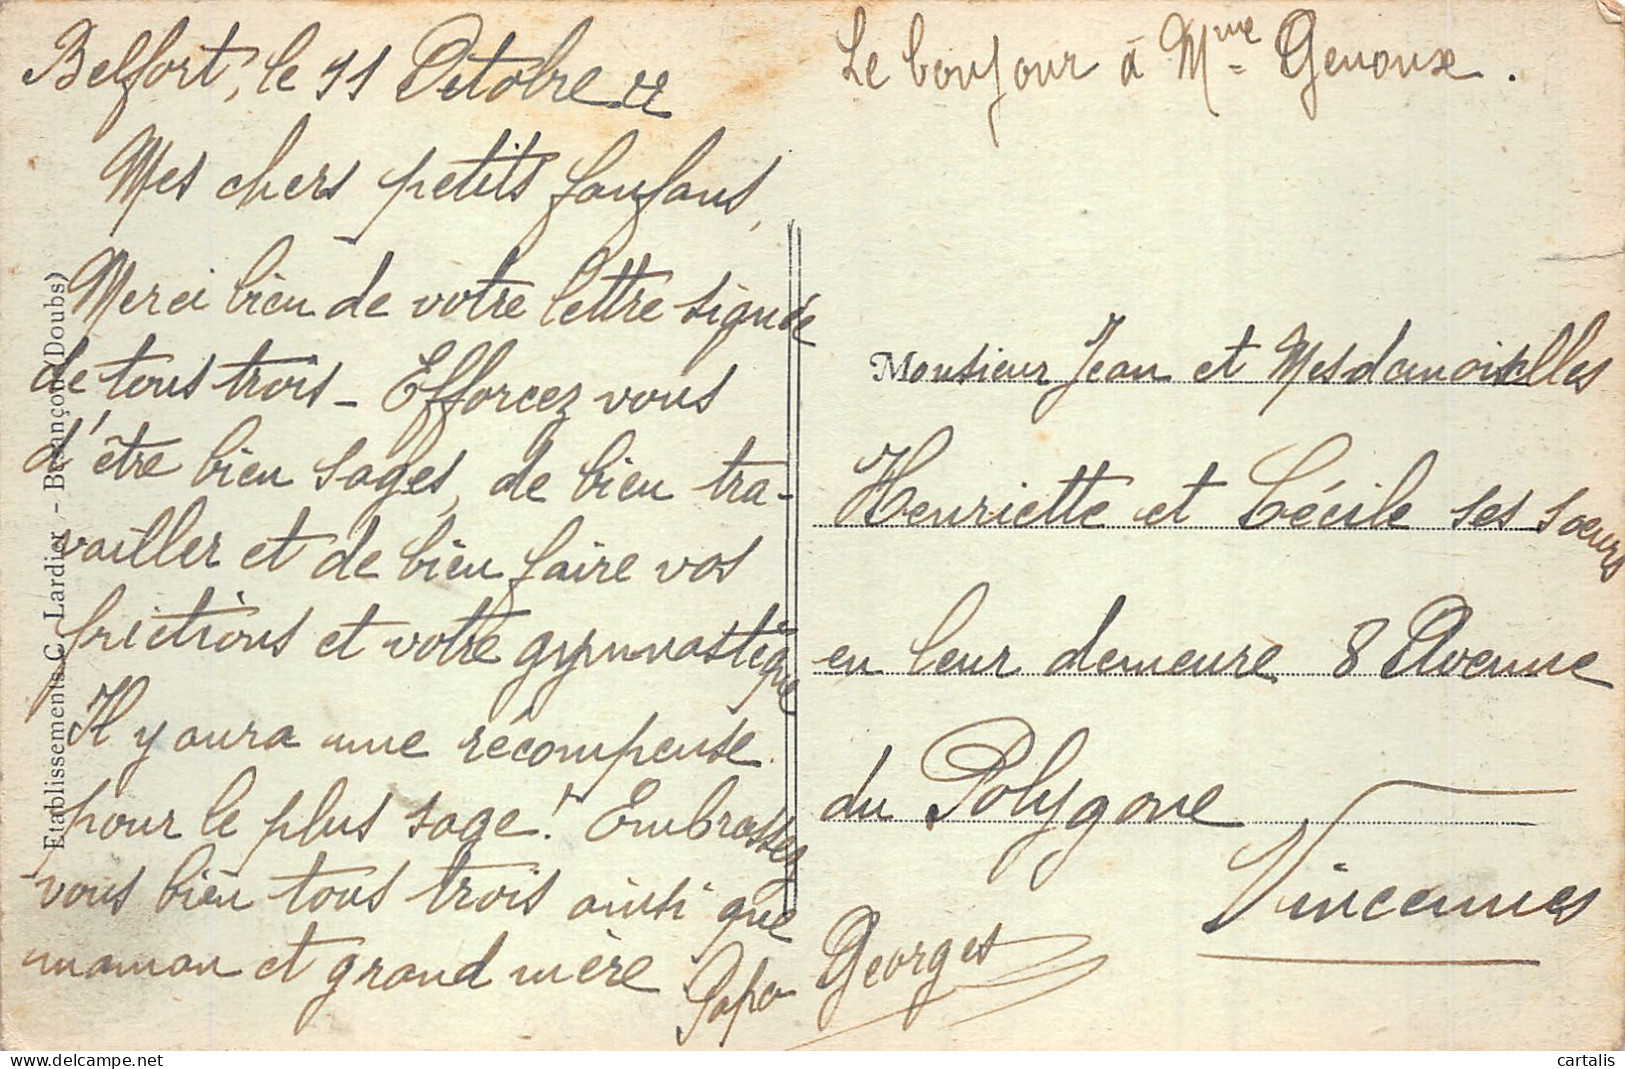 Belfort, le 11 Octobre 22
Mes chers petits fanfans,
Merci bien de votre lettre signée
de tous trois - Efforcez vous
d'être bien sages, de bien tra-
vailler et de bien faire vos
frictions et votre gymnastique
Il y aura une récompense
pour le plus sage! Embrassez
vous bien tous trois ainsi que
maman et grand mère. Papa Georges
Le bonjour à Mme Genoux.
Monsieur Jean et Mesdemoiselles
Henriette et Cécile ses soeurs
en leur demeure 8 Avenue
du Polygone
Vincennes
Etablissements C. Lardier - Besançon (Doubs)
cartalis